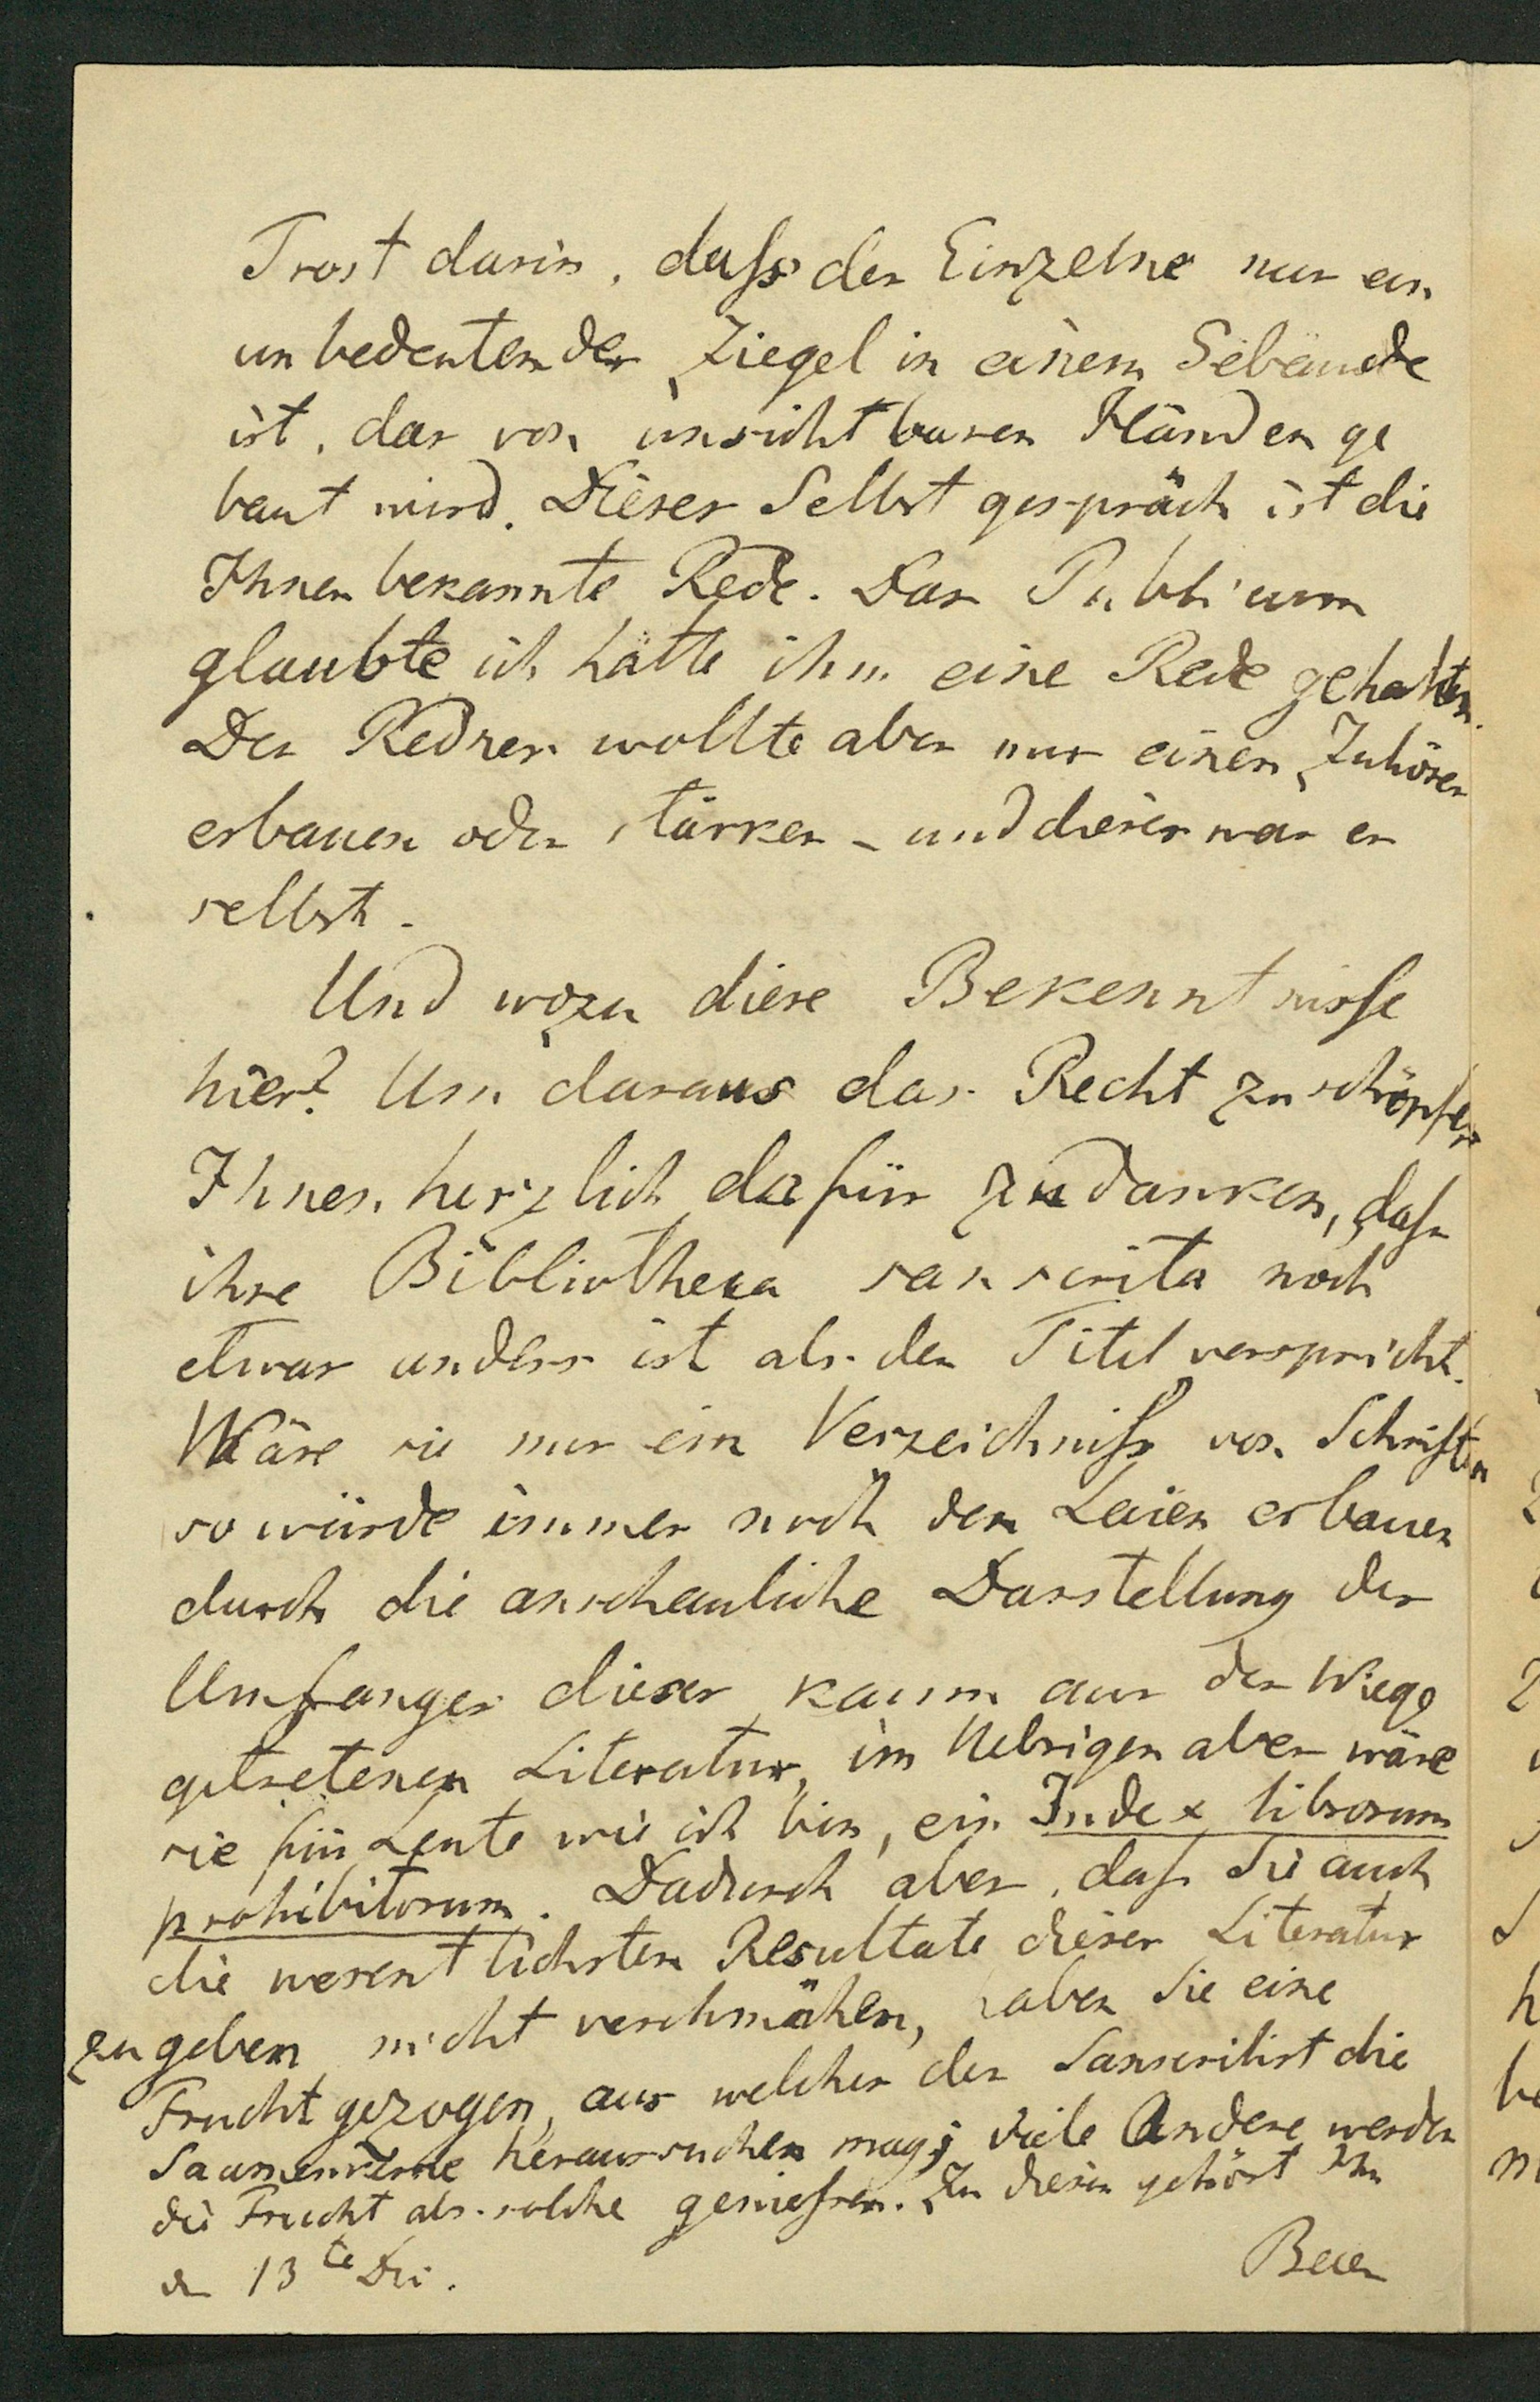 Trost darin, dass der Einzelne nur ein
unbedeutender Ziegel in einem Gebäude
ist, das von unsichtbaren Händen ge
baut wird. Dieses Selbstgespräch ist die
Ihnen bekannte Rede. Das Publicum
glaubte ich hätte ihm eine Rede gehalten.
Der Redner wollte aber nur einen Zuhörer
erbauen oder stärken – und dieser war er
selbst.
Und wozu diese Bekenntnisse
hier? Um daraus das Recht zu schöpfen
Ihnen herzlich dafür zu danken, dass
ihre Bibliotheca sanscrita noch
etwas anders ist als der Titel verspricht.
Wäre sie nur ein Verzeichniss von Schriften
so würde immer noch den Laien erbauen
durch die anschauliche Darstellung des
Umfanges dieser kaum aus der Wiege
getretenen Literatur, im Uebrigen aber wäre
sie für Leute wie ich bin, ein Index librorum
prohibitorum. Dadurch aber, dass Sie auch
die wesentlichsten Resultate dieser Literatur
zu geben nicht verschmähen, haben Sie eine
Frucht gezogen, aus welcher der Sanscritist die
Saamenkerne heraussuchen mag; viele Andere werden
die Frucht als solche geniessen. Zu diesen gehört Ihr
d 13te Dec.
Baer